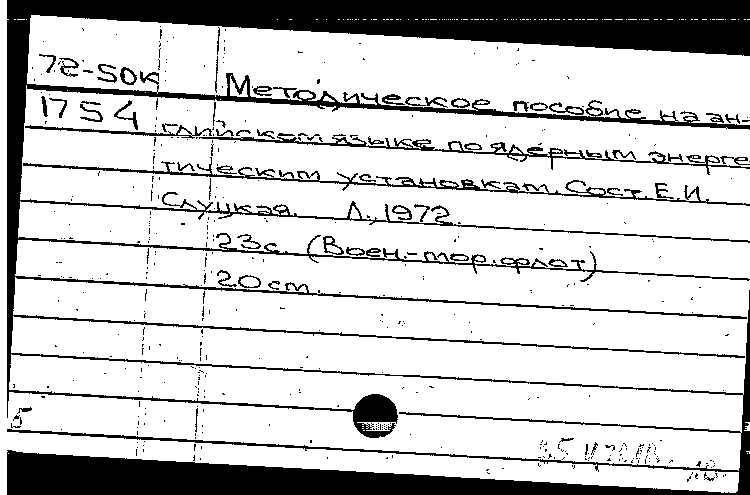 72-50K Методическое пособие на ан-
1754 глийском языке по ядерным энерге
тическим установкам. Сост. Е.И.
Слуцкая. Л., 1972.
23с. (Воен.-мор. флот)
20 cm.
5